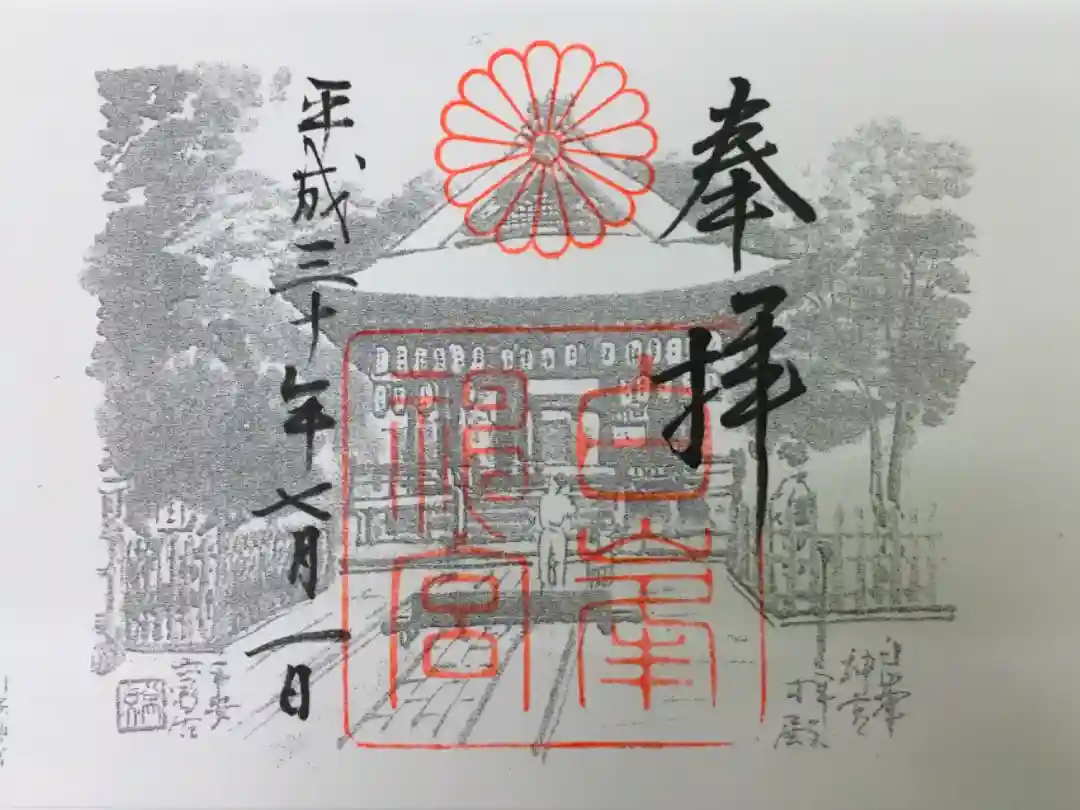 奉拝
白峯神宮
平成三十年七月一日
白峯
神宮
拝殿
平安